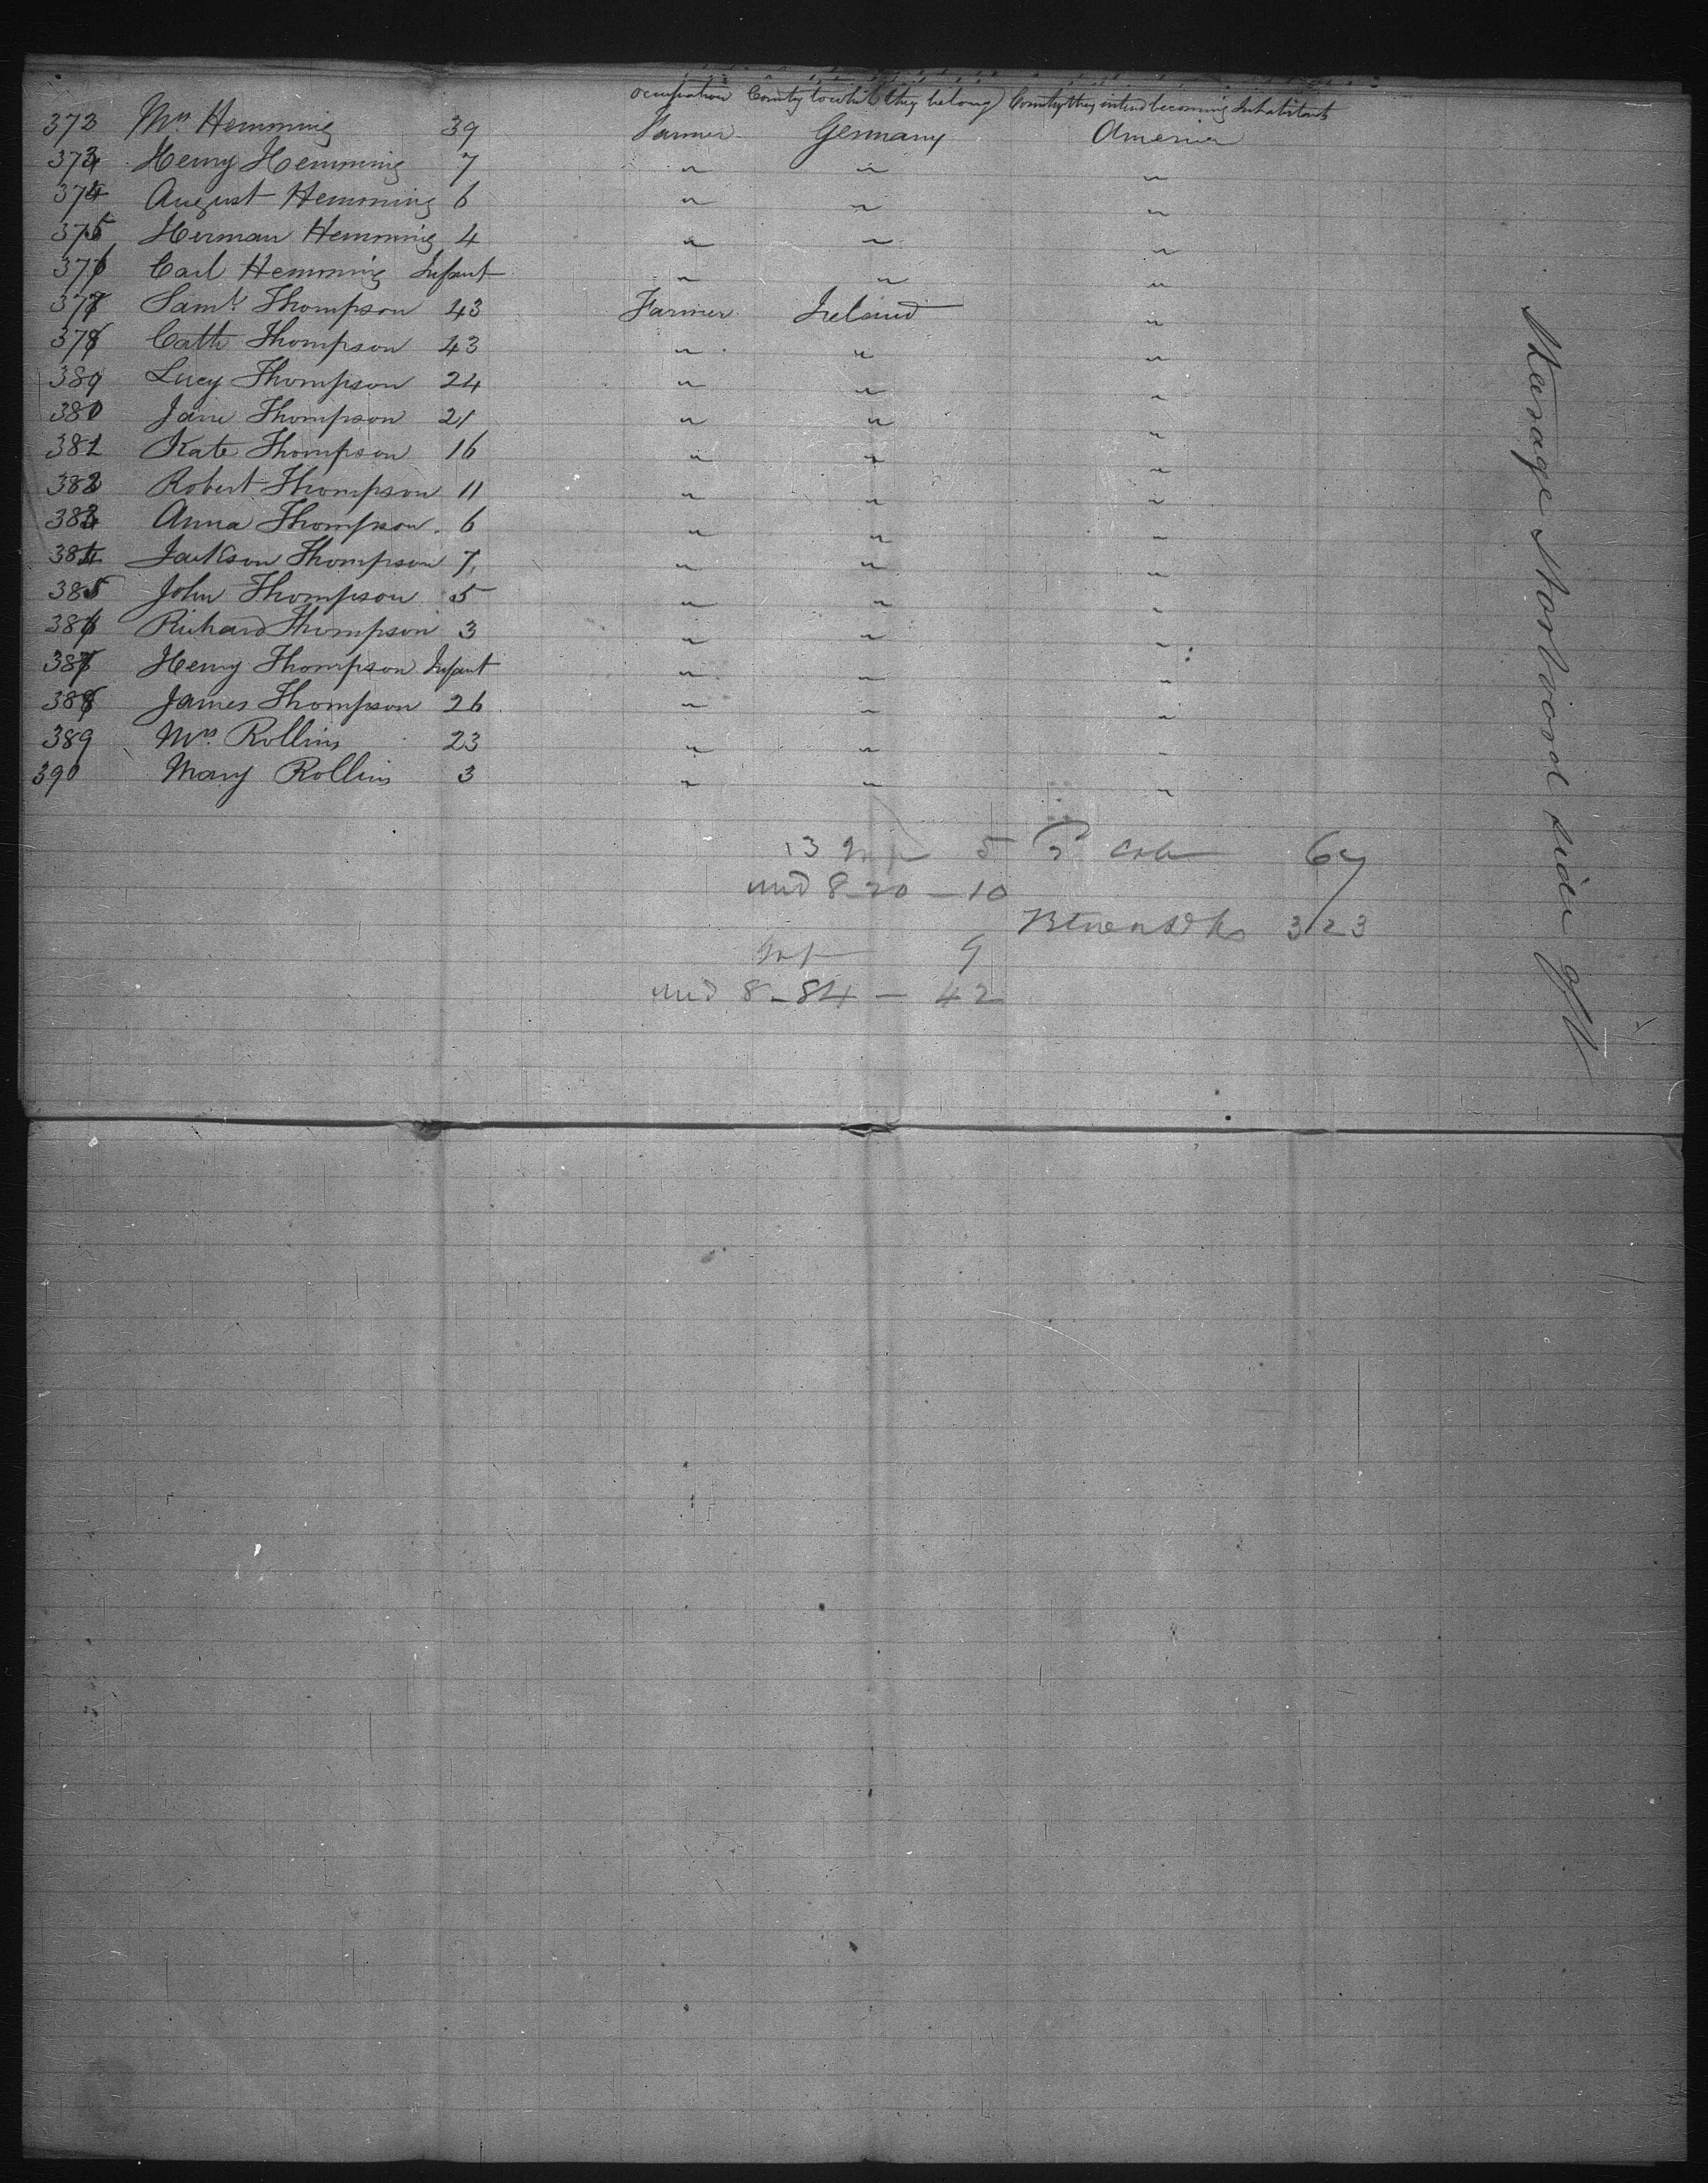 occupation Country to which they belong Country they intend becoming Inhabitants
373 Mrs Hemming 39 Farmer Germany America
373 Henry Hemming 7 " " "
374 August Hemming 6 " " "
375 Herman Hemming 4 " " "
376 Carl Hemming Infant " " "
377 Saml Thompson 43 Farmer Ireland "
378 Cath Thompson 43 " " "
389 Lucy Thompson 24 " " "
380 Jane Thompson 21 " " "
381 Kate Thompson 16 " " "
382 Robert Thompson 11 " " "
383 Anna Thompson 6 " " "
384 Jackson Thompson 7 " " "
385 John Thompson 5 " " "
386 Richard Thompson 3 " " "
387 Henry Thompson Infant " " "
388 James Thompson 26 " " "
389 Mrs Rollins 23 " " "
390 Mary Rollins 3 " " "
13 5 67
und 8 - 20 - 10
323
Inf 9
und 8 - 84 - 42
Sterage Starboard side